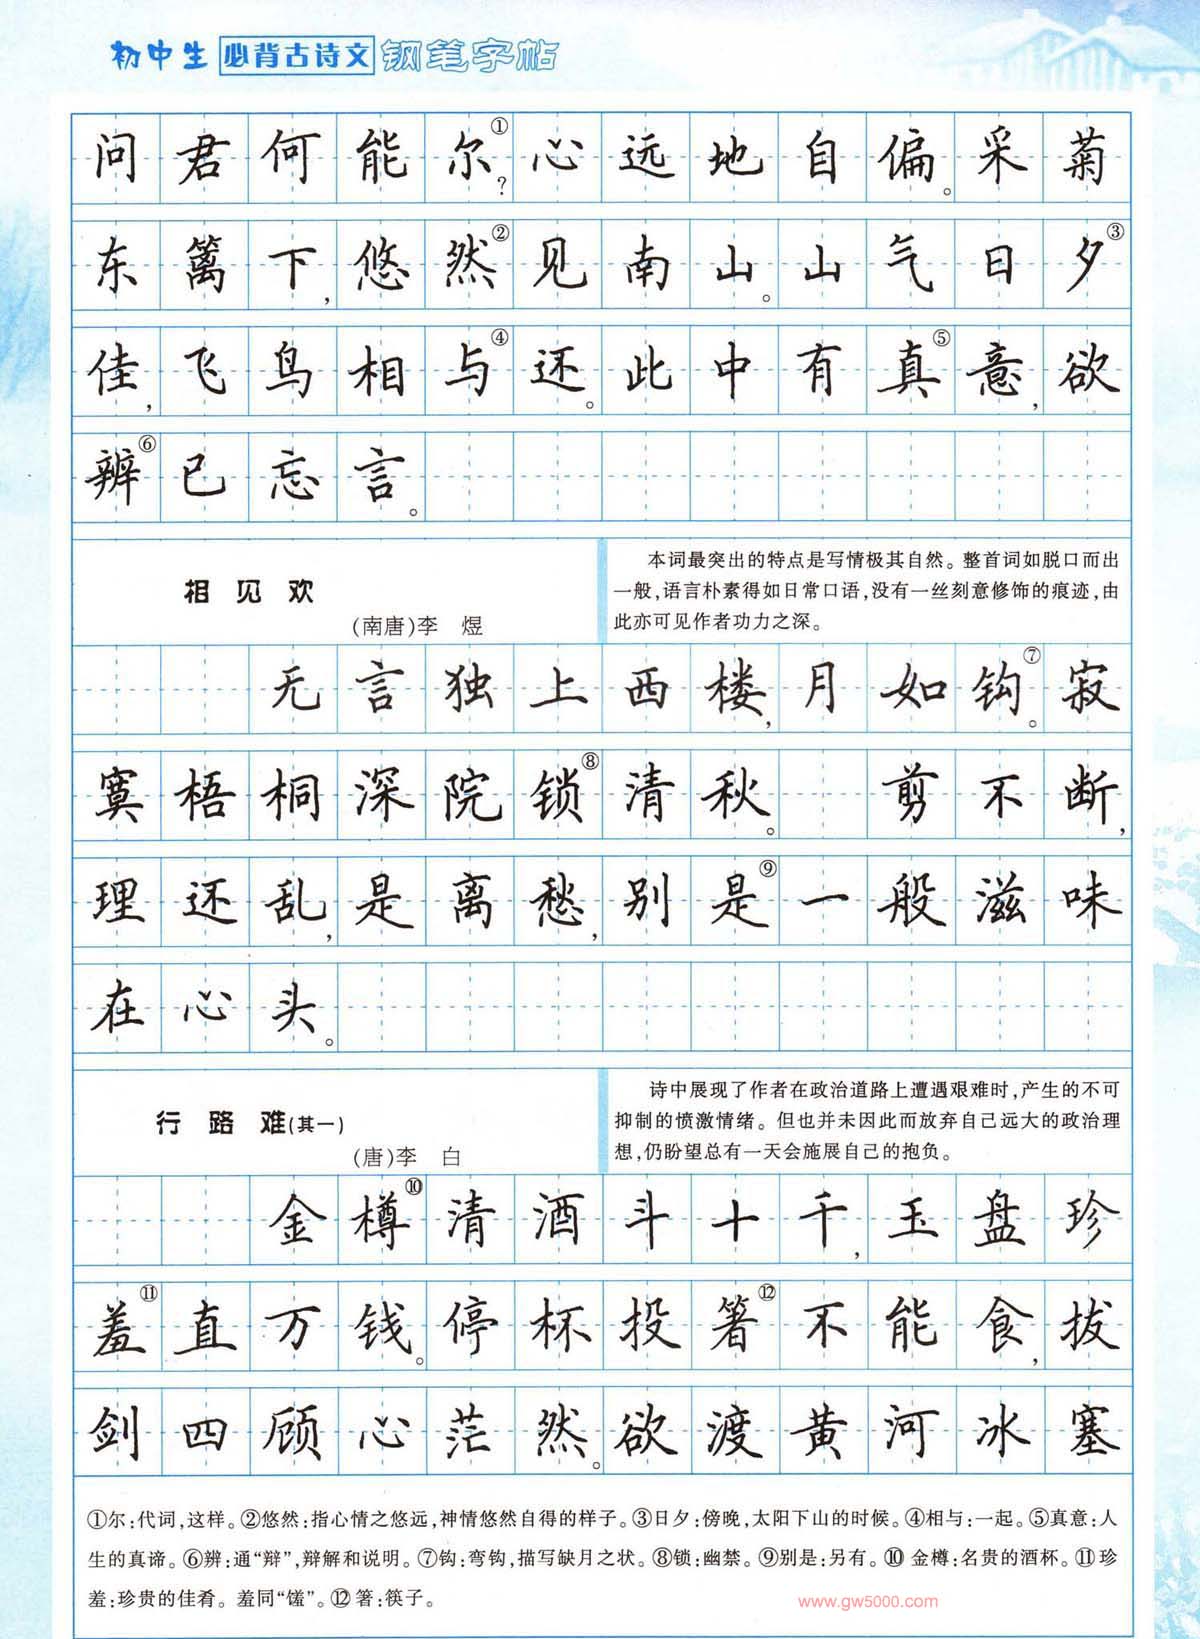 初中生 必背古诗文 钢笔字帖
问君何能尔①?心远地自偏。采菊
东篱下,悠然②见南山。山气日夕③
佳,飞鸟相与④还。此中有真⑤意,欲
辨⑥已忘言。
相见欢
(南唐)李 煜
本词最突出的特点是写情极其自然。整首词如脱口而出
一般,语言朴素得如日常口语,没有一丝刻意修饰的痕迹,由
此亦可见作者功力之深。
无言独上西楼,月如钩⑦。寂
寞梧桐深院锁⑧清秋。 剪不断,
理还乱,是离愁,别是⑨一般滋味
在心头。
行路难(其一)
(唐)李 白
诗中展现了作者在政治道路上遭遇艰难时,产生的不可
抑制的愤激情绪。但也并未因此而放弃自己远大的政治理
想,仍盼望总有一天会施展自己的抱负。
金樽⑩清酒斗十千,玉盘珍
羞⑪直万钱。停杯投箸⑫不能食,拔
剑四顾心茫然。欲渡黄河冰塞
①尔:代词,这样。②悠然:指心情之悠远,神情悠然自得的样子。③日夕:傍晚,太阳下山的时候。④相与:一起。⑤真意:人
生的真谛。⑥辨:通“辩”,辩解和说明。⑦钩:弯钩,描写缺月之状。⑧锁:幽禁。⑨别是:另有。⑩金樽:名贵的酒杯。⑪珍
羞:珍贵的佳肴。羞同“馐”。⑫箸:筷子。
www.gw5000.com